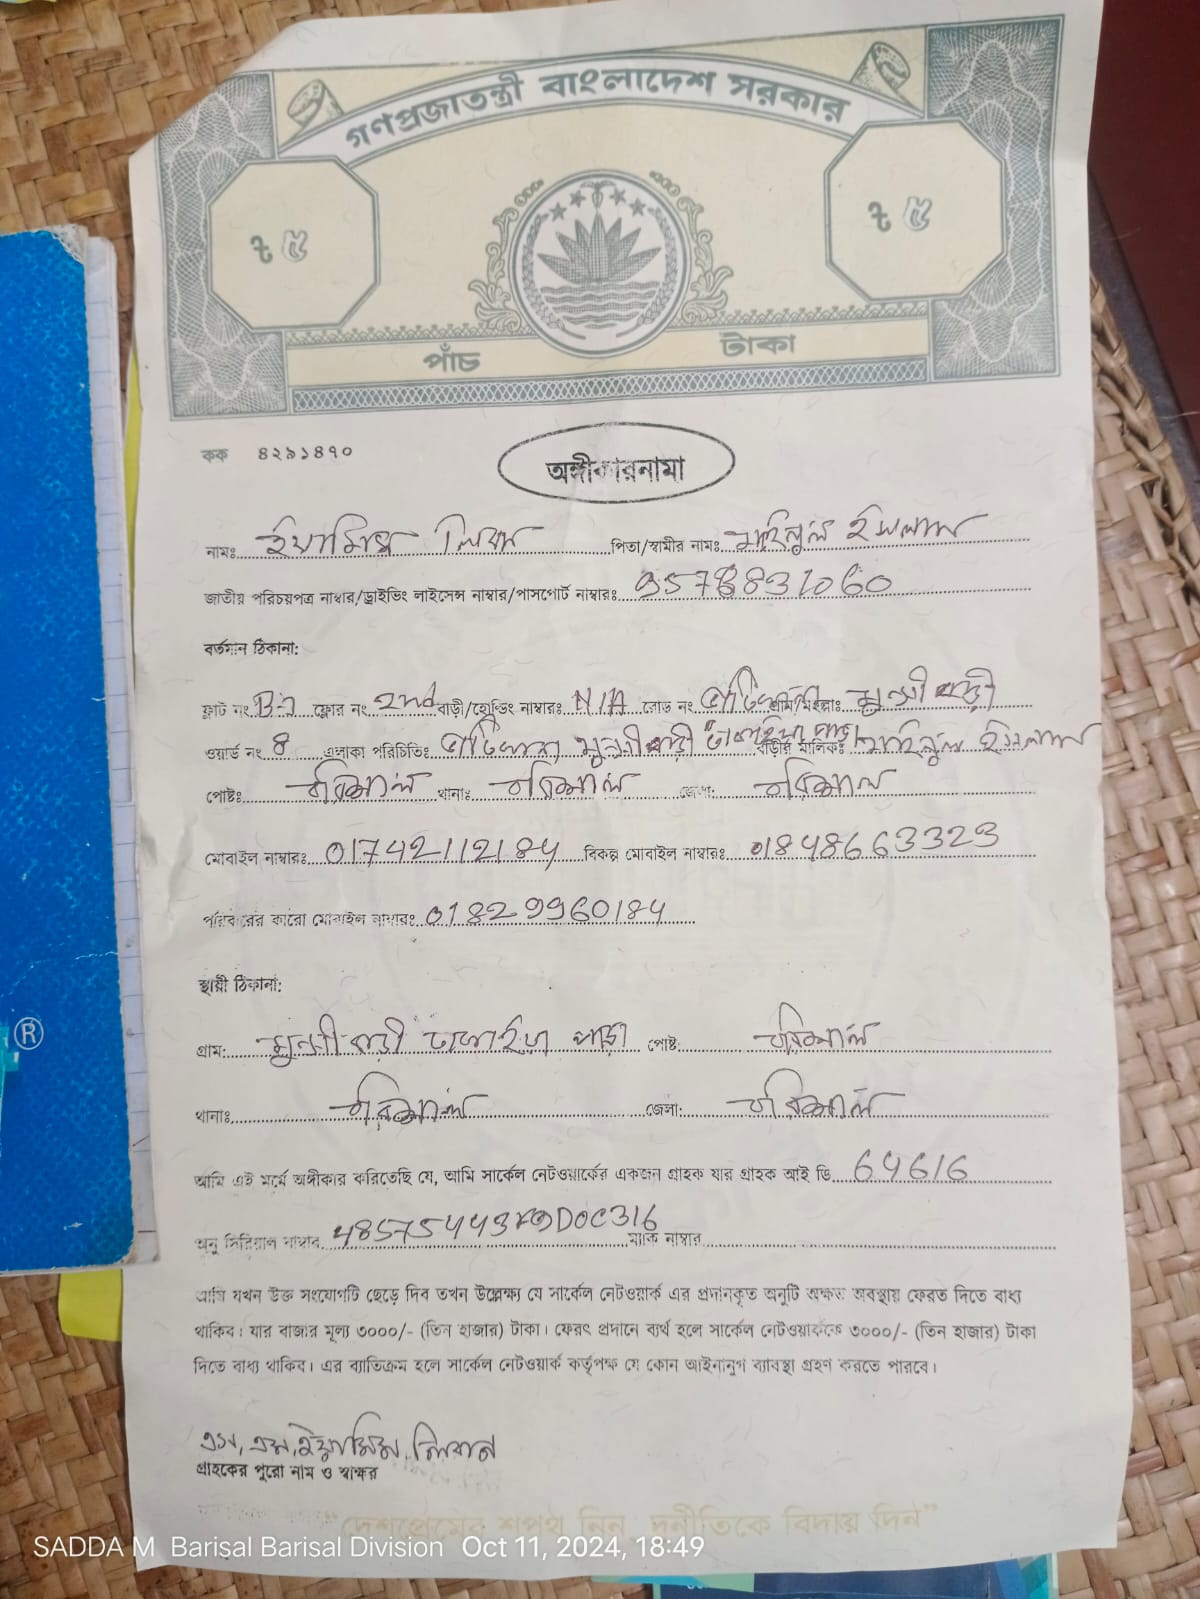 গণপ্রজাতন্ত্রী বাংলাদেশ সরকার
৳ ৫ ৳ ৫
পাঁচ টাকা
কক ৪২৯১৪৭০
অঙ্গীকারনামা
নামঃ ইয়ামিন লিমন পিতা/স্বামীর নামঃ মাইনুল ইসলাম
জাতীয় পরিচয়পত্র নাম্বার/ড্রাইভিং লাইসেন্স নাম্বার/পাসপোর্ট নাম্বারঃ 9578831060
বর্তমান ঠিকানা:
ফ্লাট নং ফ্লোর নং 2nd বাড়ী/হোল্ডিং নাম্বারঃ N/A রোড নং গ্রাম/মহল্লাঃ মুন্সী বাড়ী
ওয়ার্ড নং 8 এলাকা পরিচিতিঃ মুন্সী বাড়ী বাড়ীর মালিকঃ মাইনুল ইসলাম
পোষ্টঃ বরিশাল থানাঃ বরিশাল জেলা: বরিশাল
মোবাইল নাম্বারঃ 01742112184 বিকল্প মোবাইল নাম্বারঃ 01848663323
পরিবারের কারো মোবাইল নাম্বারঃ 01829960184
স্থায়ী ঠিকানা:
গ্রাম: মুন্সী বাড়ী পোষ্ট: বরিশাল
থানাঃ বরিশাল জেলা: বরিশাল
আমি এই মর্মে অঙ্গীকার করিতেছি যে, আমি সার্কেল নেটওয়ার্কের একজন গ্রাহক যার গ্রাহক আই ডি 64616
অনু সিরিয়াল নাম্বার ম্যাক নাম্বার
আমি যখন উক্ত সংযোগটি ছেড়ে দিব তখন উল্লেক্ষ্য যে সার্কেল নেটওয়ার্ক এর প্রদানকৃত অনুটি অক্ষত অবস্থায় ফেরত দিতে বাধ্য
থাকিব। যার বাজার মূল্য ৩০০০/- (তিন হাজার) টাকা। ফেরৎ প্রদানে ব্যর্থ হলে সার্কেল নেটওয়ার্ককে ৩০০০/- (তিন হাজার) টাকা
দিতে বাধ্য থাকিব। এর ব্যাতিক্রম হলে সার্কেল নেটওয়ার্ক কর্তৃপক্ষ যে কোন আইনানুগ ব্যাবস্থা গ্রহণ করতে পারবে।
এস, এম, ইয়ামিন, লিমন
গ্রাহকের পুরো নাম ও স্বাক্ষর
"দেশপ্রেমের শপথ নিন, দুর্নীতিকে বিদায় দিন"
SADDA M Barisal Barisal Division Oct 11, 2024, 18:49
®